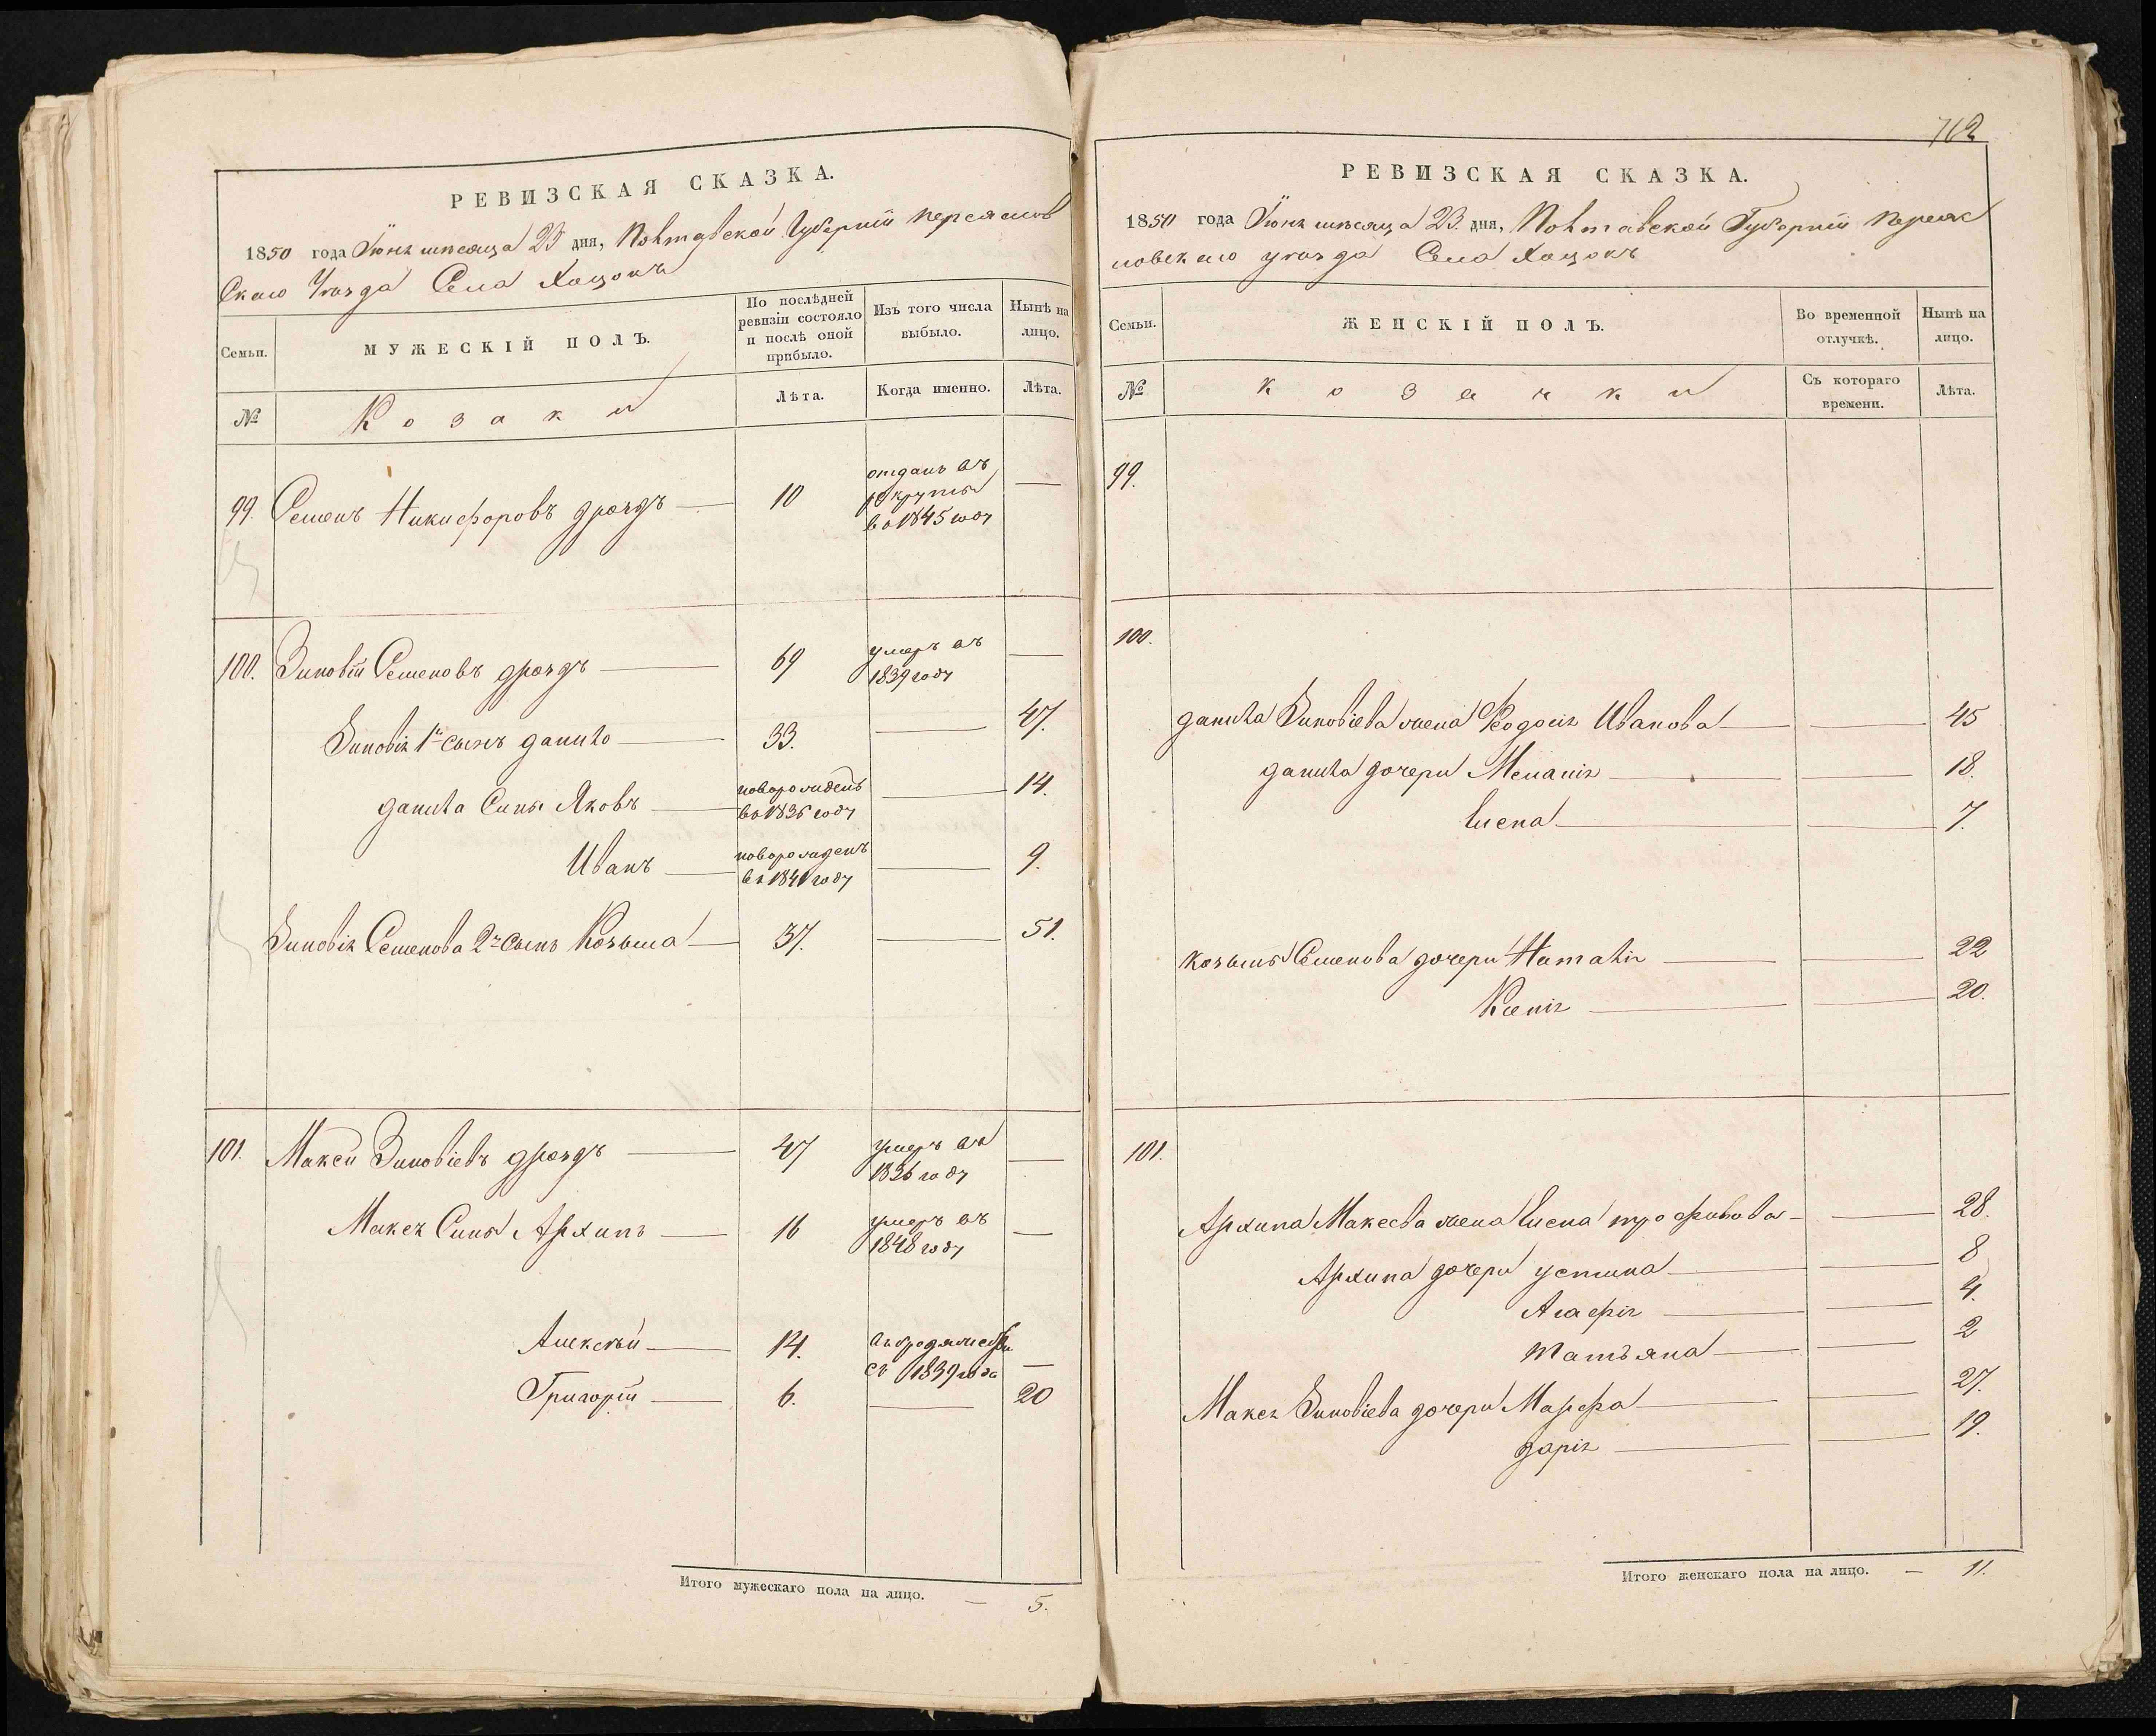 РЕВИЗСКАЯ СКАЗКА.
1850 года Іюня мѣсяца 23 дня, Полтавской Губерніи Переяслов
Скаго Уѣзда Села Хоцокъ
Семьи.
МУЖЕСКІЙ ПОЛЪ.
По послѣдней ревизіи состояло и послѣ оной прибыло.
Изъ того числа выбыло.
Нынѣ на лицо.
№
Козаки
Лѣта.
Когда именно.
Лѣта.
99. Семенъ Никифоровъ дроздъ — 10 отданъ въ рекруты въ 1845 году —
100. Зиновій Семеновъ дроздъ — 69 умеръ въ 1839 году —
Зиновія 1й сынъ данило — 33. — 47.
данила Сины Яковъ — новорожденъ въ 1836 году — 14.
Иванъ — новорожденъ въ 1841 году — 9.
Зиновія Семенова 2й сынъ Козьма — 37. — 51.
101. Максей Зиновіевъ дроздъ — 47 умеръ въ 1836 году —
Максея Сины Архипъ — 16 умеръ въ 1848 году —
Алексѣй — 14. въ бродяжестви съ 1839 года —
Григорій — 6. — 20
Итого мужескаго пола на лицо. — 5.
712
РЕВИЗСКАЯ СКАЗКА.
1850 года Іюня мѣсяца 23. дня, Полтавской Губерніи Переяс
ловскаго уѣзда Села Хоцокъ
Семьи.
ЖЕНСКІЙ ПОЛЪ.
Во временной отлучкѣ.
Нынѣ на лицо.
№
козачки
Съ котораго времени.
Лѣта.
99.
100.
данила Зиновіева жена Феодосія Иванова — — 45
данила дочери Меланія — — 18.
Елена — — 7.
козьмы Семенова дочери Наталія — — 22
Ксенія — — 20.
101.
Архипа Максеева жена Елена трофимова — — 28.
Архипа дочери устина — — 8
Агафія — — 4.
татьяна — — 2
Максея Зиновіева дочери Марфа — — 27.
дарія — — 19.
Итого женскаго пола на лицо. — 11.